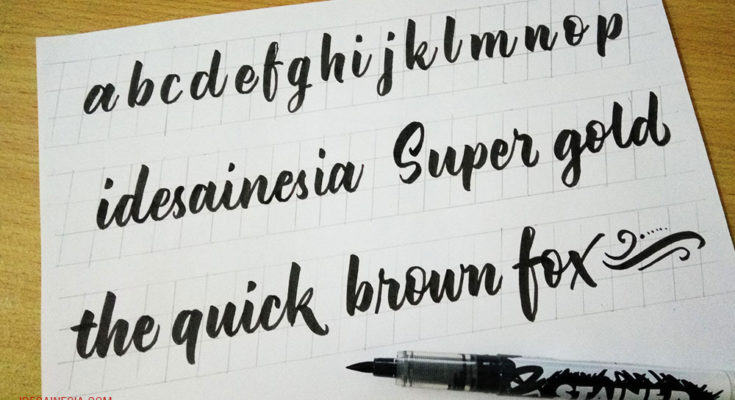 a b c d e f g h i j k l m n o p
idesainesia Super gold
the quick brown fox
STAINER
IDESAINESIA.COM